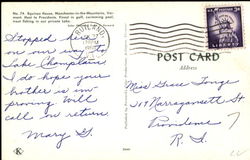 No. 74. Equinox House, Manchester-in-the-Mountains, Vermont Host to Presidents. Finest in golf, swimming pool, trout fishing in our private lake.
Stopped here
on our way to
Lake Champlain
I do hope your
brother is im
proving Will
call on return.
Mary G.
RUTLAND
LIBERTY
POST CARD
Miss Grace Tonge
219 Narragansett St
Providence 7
R. I.
K